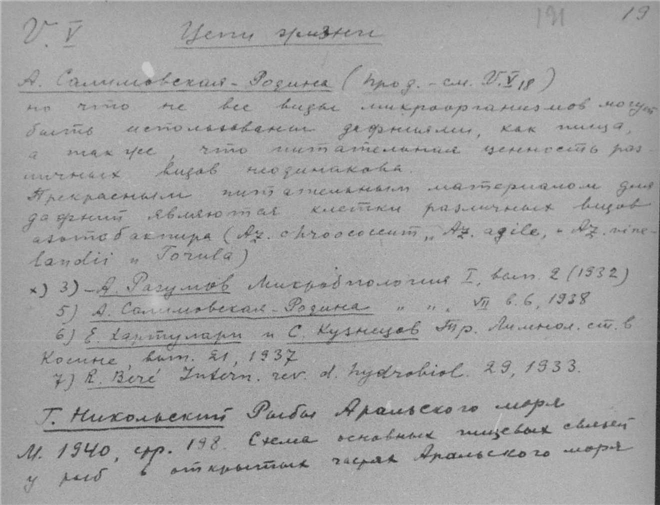 V. V Цепи жизни 191 19
А. Салимовская-Родина (прод. - см. V. V 18)
но что не все виды микроорганизмов могут
быть использованы дафниями, как пища,
а также, что питательная ценность раз-
личных видов неодинакова.
Прекрасным питательным материалом для
дафний являются клетки различных видов
азотобактера (Az. chroococcum, Az. agile, Az. vine-
landii и Torula)
x) 3) - А. Разумов Микробиология I, вып. 2 (1932)
5) А. Салимовская-Родина " " VII в. 6, 1938
6) Е. Хартулари и С. Кузнецов Тр. Лимнол. ст. в
Косине вып. 21, 1937
7) R. Béré Intern. rev. d. hydrobiol. 29, 1933.
Г. Никольский Рыбы Аральского моря
М. 1940, стр. 198. Схема основных пищевых связей
у рыб в открытых частях Аральского моря